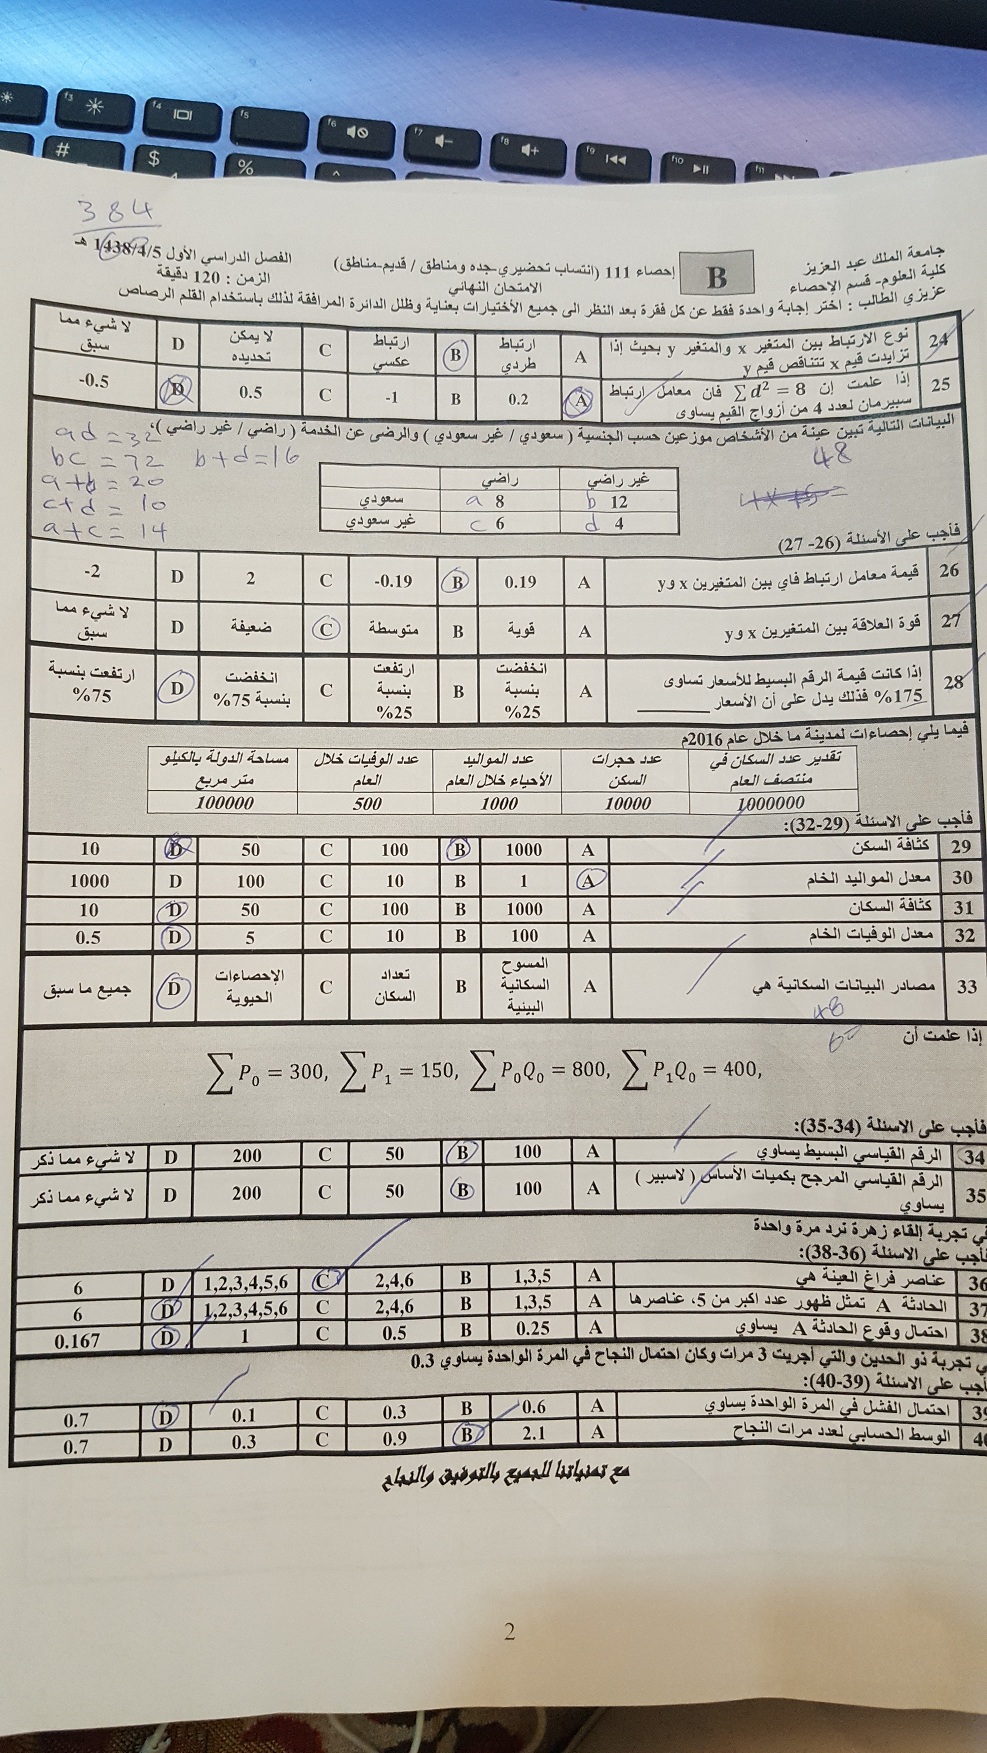 f3
f4
f5
f6
f7
f8
f9
f10
f11
#
$
%
384
جامعة الملك عبد العزيز
كلية العلوم- قسم الإحصاء
B
إحصاء 111 (انتساب تحضيري-جده ومناطق / قديم-مناطق)
الامتحان النهائي
الفصل الدراسي الأول 1438/4/5 هـ
الزمن : 120 دقيقة
عزيزي الطالب : اختر إجابة واحدة فقط عن كل فقرة بعد النظر الى جميع الأختيارات بعناية وظلل الدائرة المرافقة لذلك باستخدام القلم الرصاص
24 نوع الارتباط بين المتغير x والمتغير y بحيث إذا تزايدت قيم x تتناقص قيم y A ارتباط طردي B ارتباط عكسي C لا يمكن تحديده D لا شيء مما سبق
25 إذا علمت إن ∑d² = 8 فان معامل ارتباط سبيرمان لعدد 4 من أزواج القيم يساوى A 0.2 B -1 C 0.5 D -0.5
البيانات التالية تبين عينة من الأشخاص موزعين حسب الجنسية ( سعودي / غير سعودي ) والرضى عن الخدمة ( راضي / غير راضي )،
ad = 32
bc = 72 b+d=16
a+b = 20
c+d = 10
a+c = 14
48
راضي غير راضي
سعودي a 8 b 12
غير سعودي c 6 d 4
فأجب على الأسئلة (26- 27)
26 قيمة معامل ارتباط فاي بين المتغيرين x وy A 0.19 B -0.19 C 2 D -2
27 قوة العلاقة بين المتغيرين x وy A قوية B متوسطة C ضعيفة D لا شيء مما سبق
28 إذا كانت قيمة الرقم البسيط للأسعار تساوى 175% فذلك يدل على أن الأسعار ________ A انخفضت بنسبة 25% B ارتفعت بنسبة 25% C انخفضت بنسبة 75% D ارتفعت بنسبة 75%
فيما يلي إحصاءات لمدينة ما خلال عام 2016م
تقدير عدد السكان في منتصف العام عدد حجرات السكن عدد المواليد الأحياء خلال العام عدد الوفيات خلال العام مساحة الدولة بالكيلو متر مربع
1000000 10000 1000 500 100000
فأجب على الاسئلة (29-32):
29 كثافة السكن A 1000 B 100 C 50 D 10
30 معدل المواليد الخام A 1 B 10 C 100 D 1000
31 كثافة السكان A 1000 B 100 C 50 D 10
32 معدل الوفيات الخام A 100 B 10 C 5 D 0.5
33 مصادر البيانات السكانية هي A المسوح السكانية البينية B تعداد السكان C الإحصاءات الحيوية D جميع ما سبق
48
60
إذا علمت أن
∑P₀ = 300, ∑P₁ = 150, ∑P₀Q₀ = 800, ∑P₁Q₀ = 400,
فأجب على الاسئلة (34-35):
34 الرقم القياسي البسيط يساوي A 100 B 50 C 200 D لا شيء مما ذكر
35 الرقم القياسي المرجح بكميات الأساس ( لاسبير ) يساوي A 100 B 50 C 200 D لا شيء مما ذكر
في تجربة إلقاء زهرة نرد مرة واحدة
فأجب على الاسئلة (36-38):
36 عناصر فراغ العينة هي A 1,3,5 B 2,4,6 C 1,2,3,4,5,6 D 6
37 الحادثة A تمثل ظهور عدد اكبر من 5، عناصرها A 1,3,5 B 2,4,6 C 1,2,3,4,5,6 D 6
38 احتمال وقوع الحادثة A يساوي A 0.25 B 0.5 C 1 D 0.167
ي تجربة ذو الحدين والتي أجريت 3 مرات وكان احتمال النجاح في المرة الواحدة يساوي 0.3
أجب على الاسئلة (39-40):
39 احتمال الفشل في المرة الواحدة يساوي A 0.6 B 0.3 C 0.1 D 0.7
40 الوسط الحسابي لعدد مرات النجاح A 2.1 B 0.9 C 0.3 D 0.7
مع تمنياتنا للجميع بالتوفيق والنجاح
2